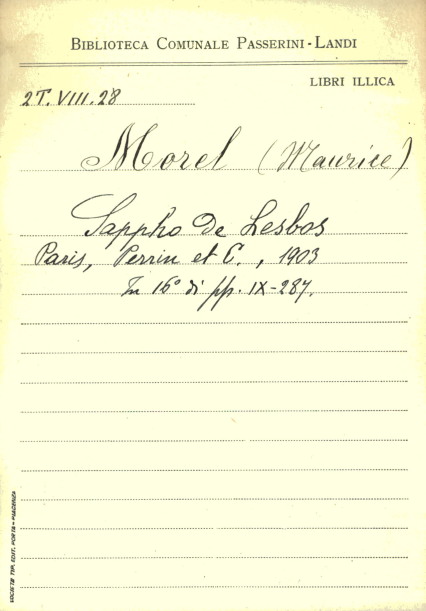 BIBLIOTECA COMUNALE PASSERINI-LANDI
LIBRI ILLICA
2T. VIII. 28
Morel (Maurice)
Sappho de Lesbos
Paris, Perrin et C., 1903
In 16° di pp. IX-287.
SOCIETÀ TIP. EDIT. PORTA - PIACENZA